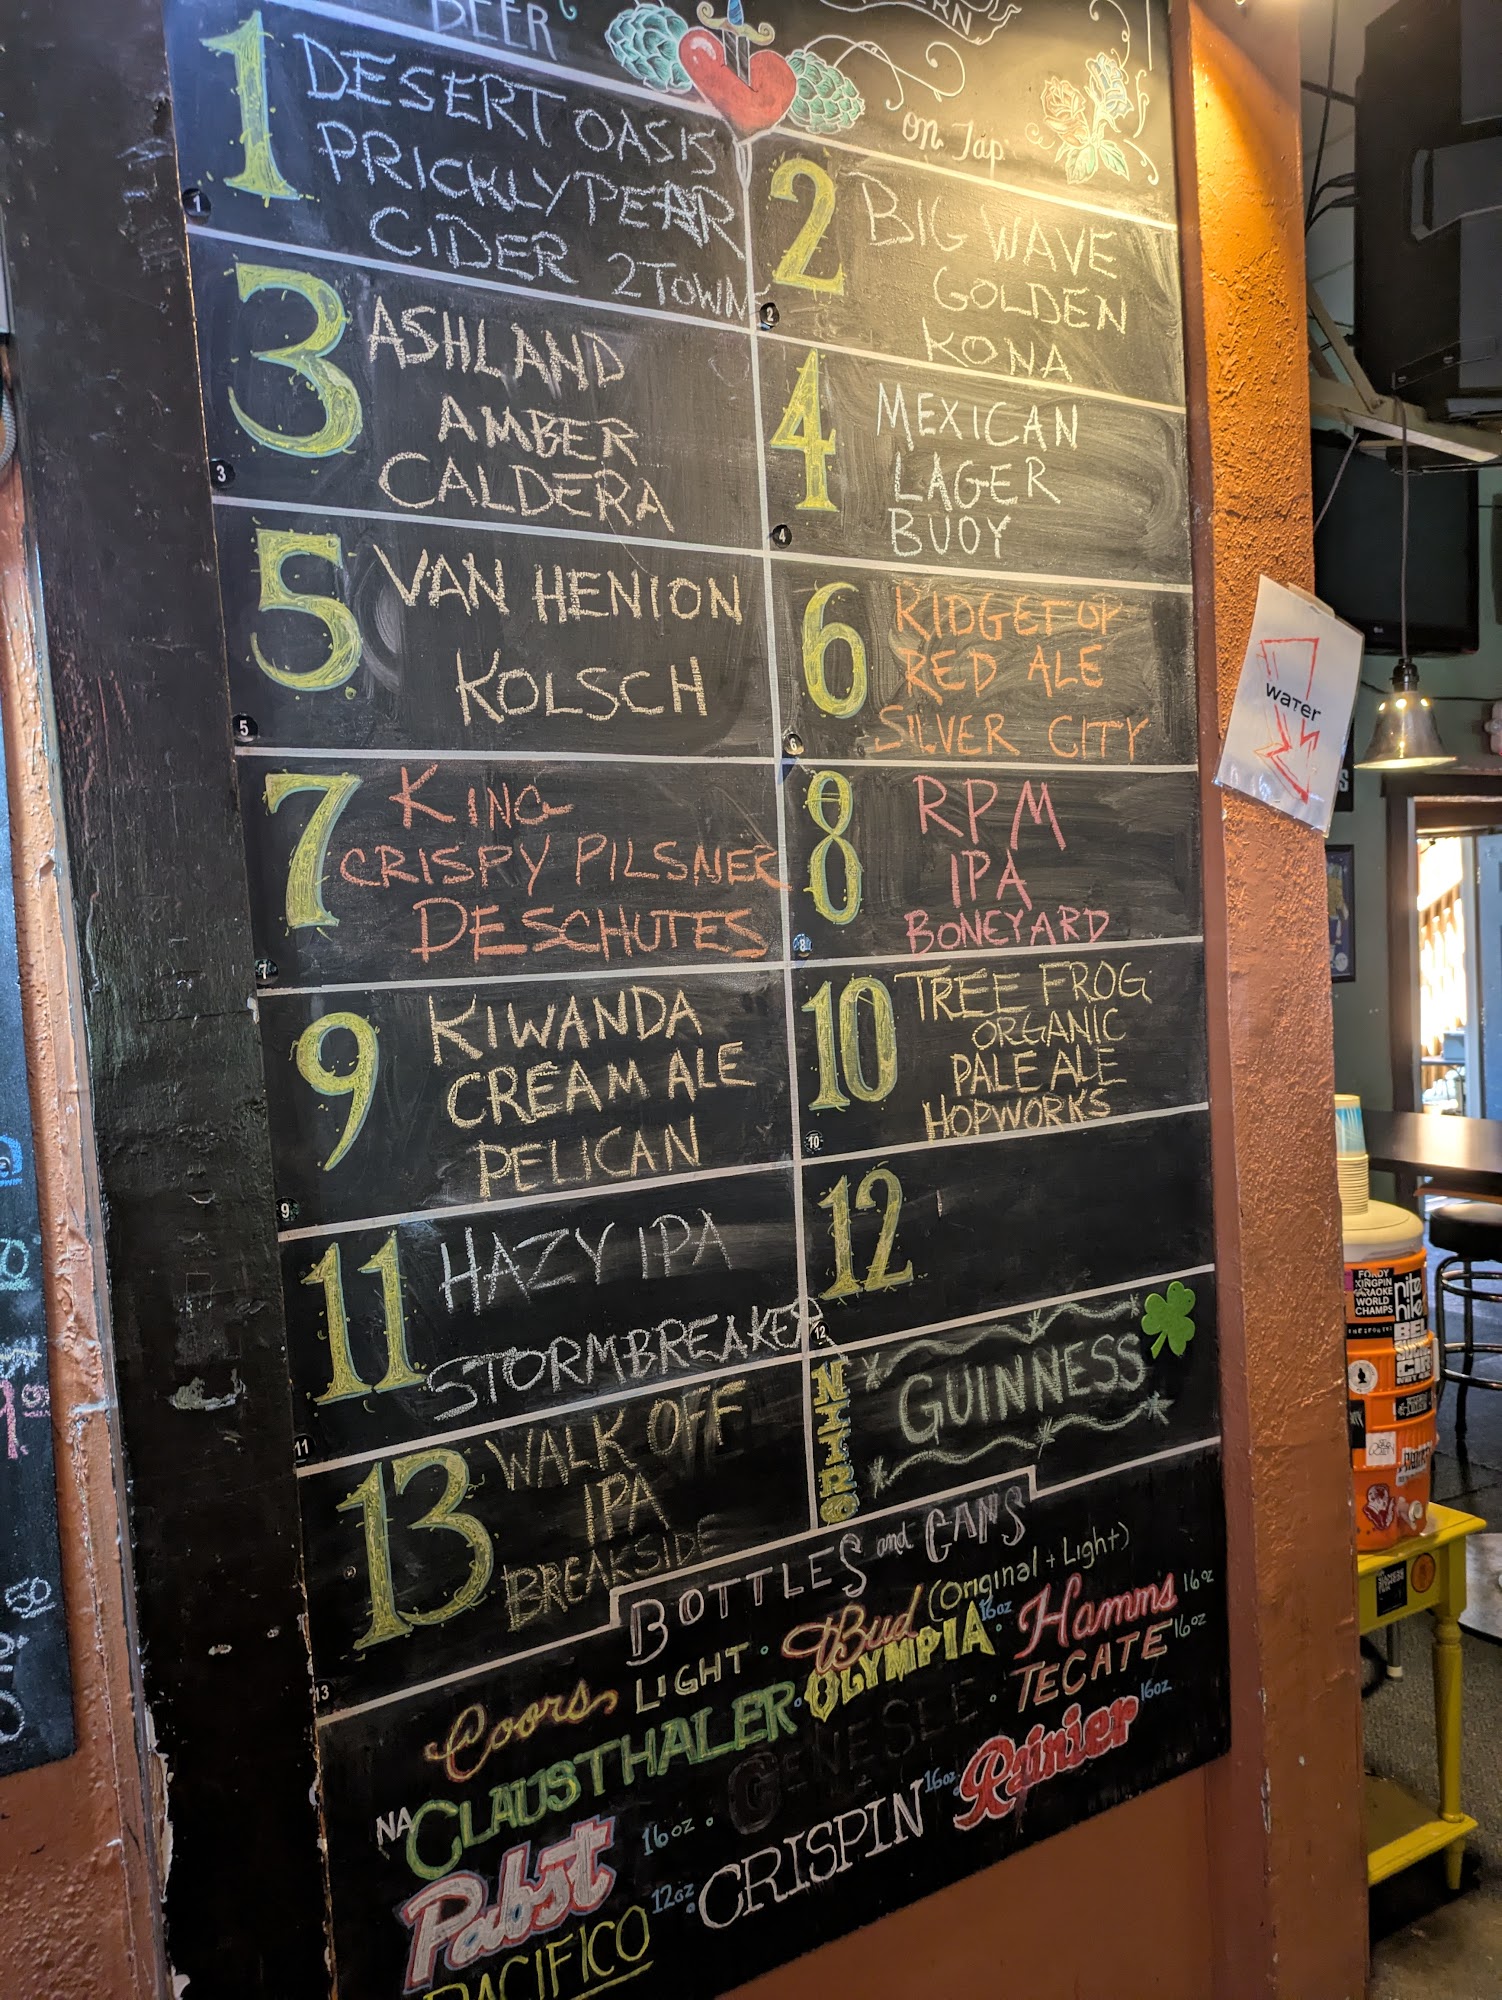 BEER
ERN
on Tap
1
DESERT OASIS
PRICKLY PEAR
CIDER 2 TOWNS
1
2
BIG WAVE
GOLDEN
KONA
2
3
ASHLAND
AMBER
CALDERA
3
4
MEXICAN
LAGER
BUOY
4
5
VAN HENION
KOLSCH
5
6
RIDGETOP
RED ALE
SILVER CITY
6
7
KING
CRISPY PILSNER
DESCHUTES
7
8
RPM
IPA
BONEYARD
8
9
KIWANDA
CREAM ALE
PELICAN
9
10
TREE FROG
ORGANIC
PALE ALE
HOPWORKS
10
11
HAZY IPA
STORMBREAKER
11
12
12
NITRO
GUINNESS
13
WALK OFF
IPA
BREAKSIDE
13
BOTTLES and CANS
Coors LIGHT · Bud (Original + Light)
NA CLAUSTHALER · OLYMPIA 16oz · Hamms 16oz
Pabst 16oz · GENESEE · TECATE 16oz
PACIFICO 12oz · CRISPIN 16oz · Rainier 16oz
water
FORDY
KINGPIN
KARAOKE
WORLD
CHAMPS
nite
hike
BEL
50